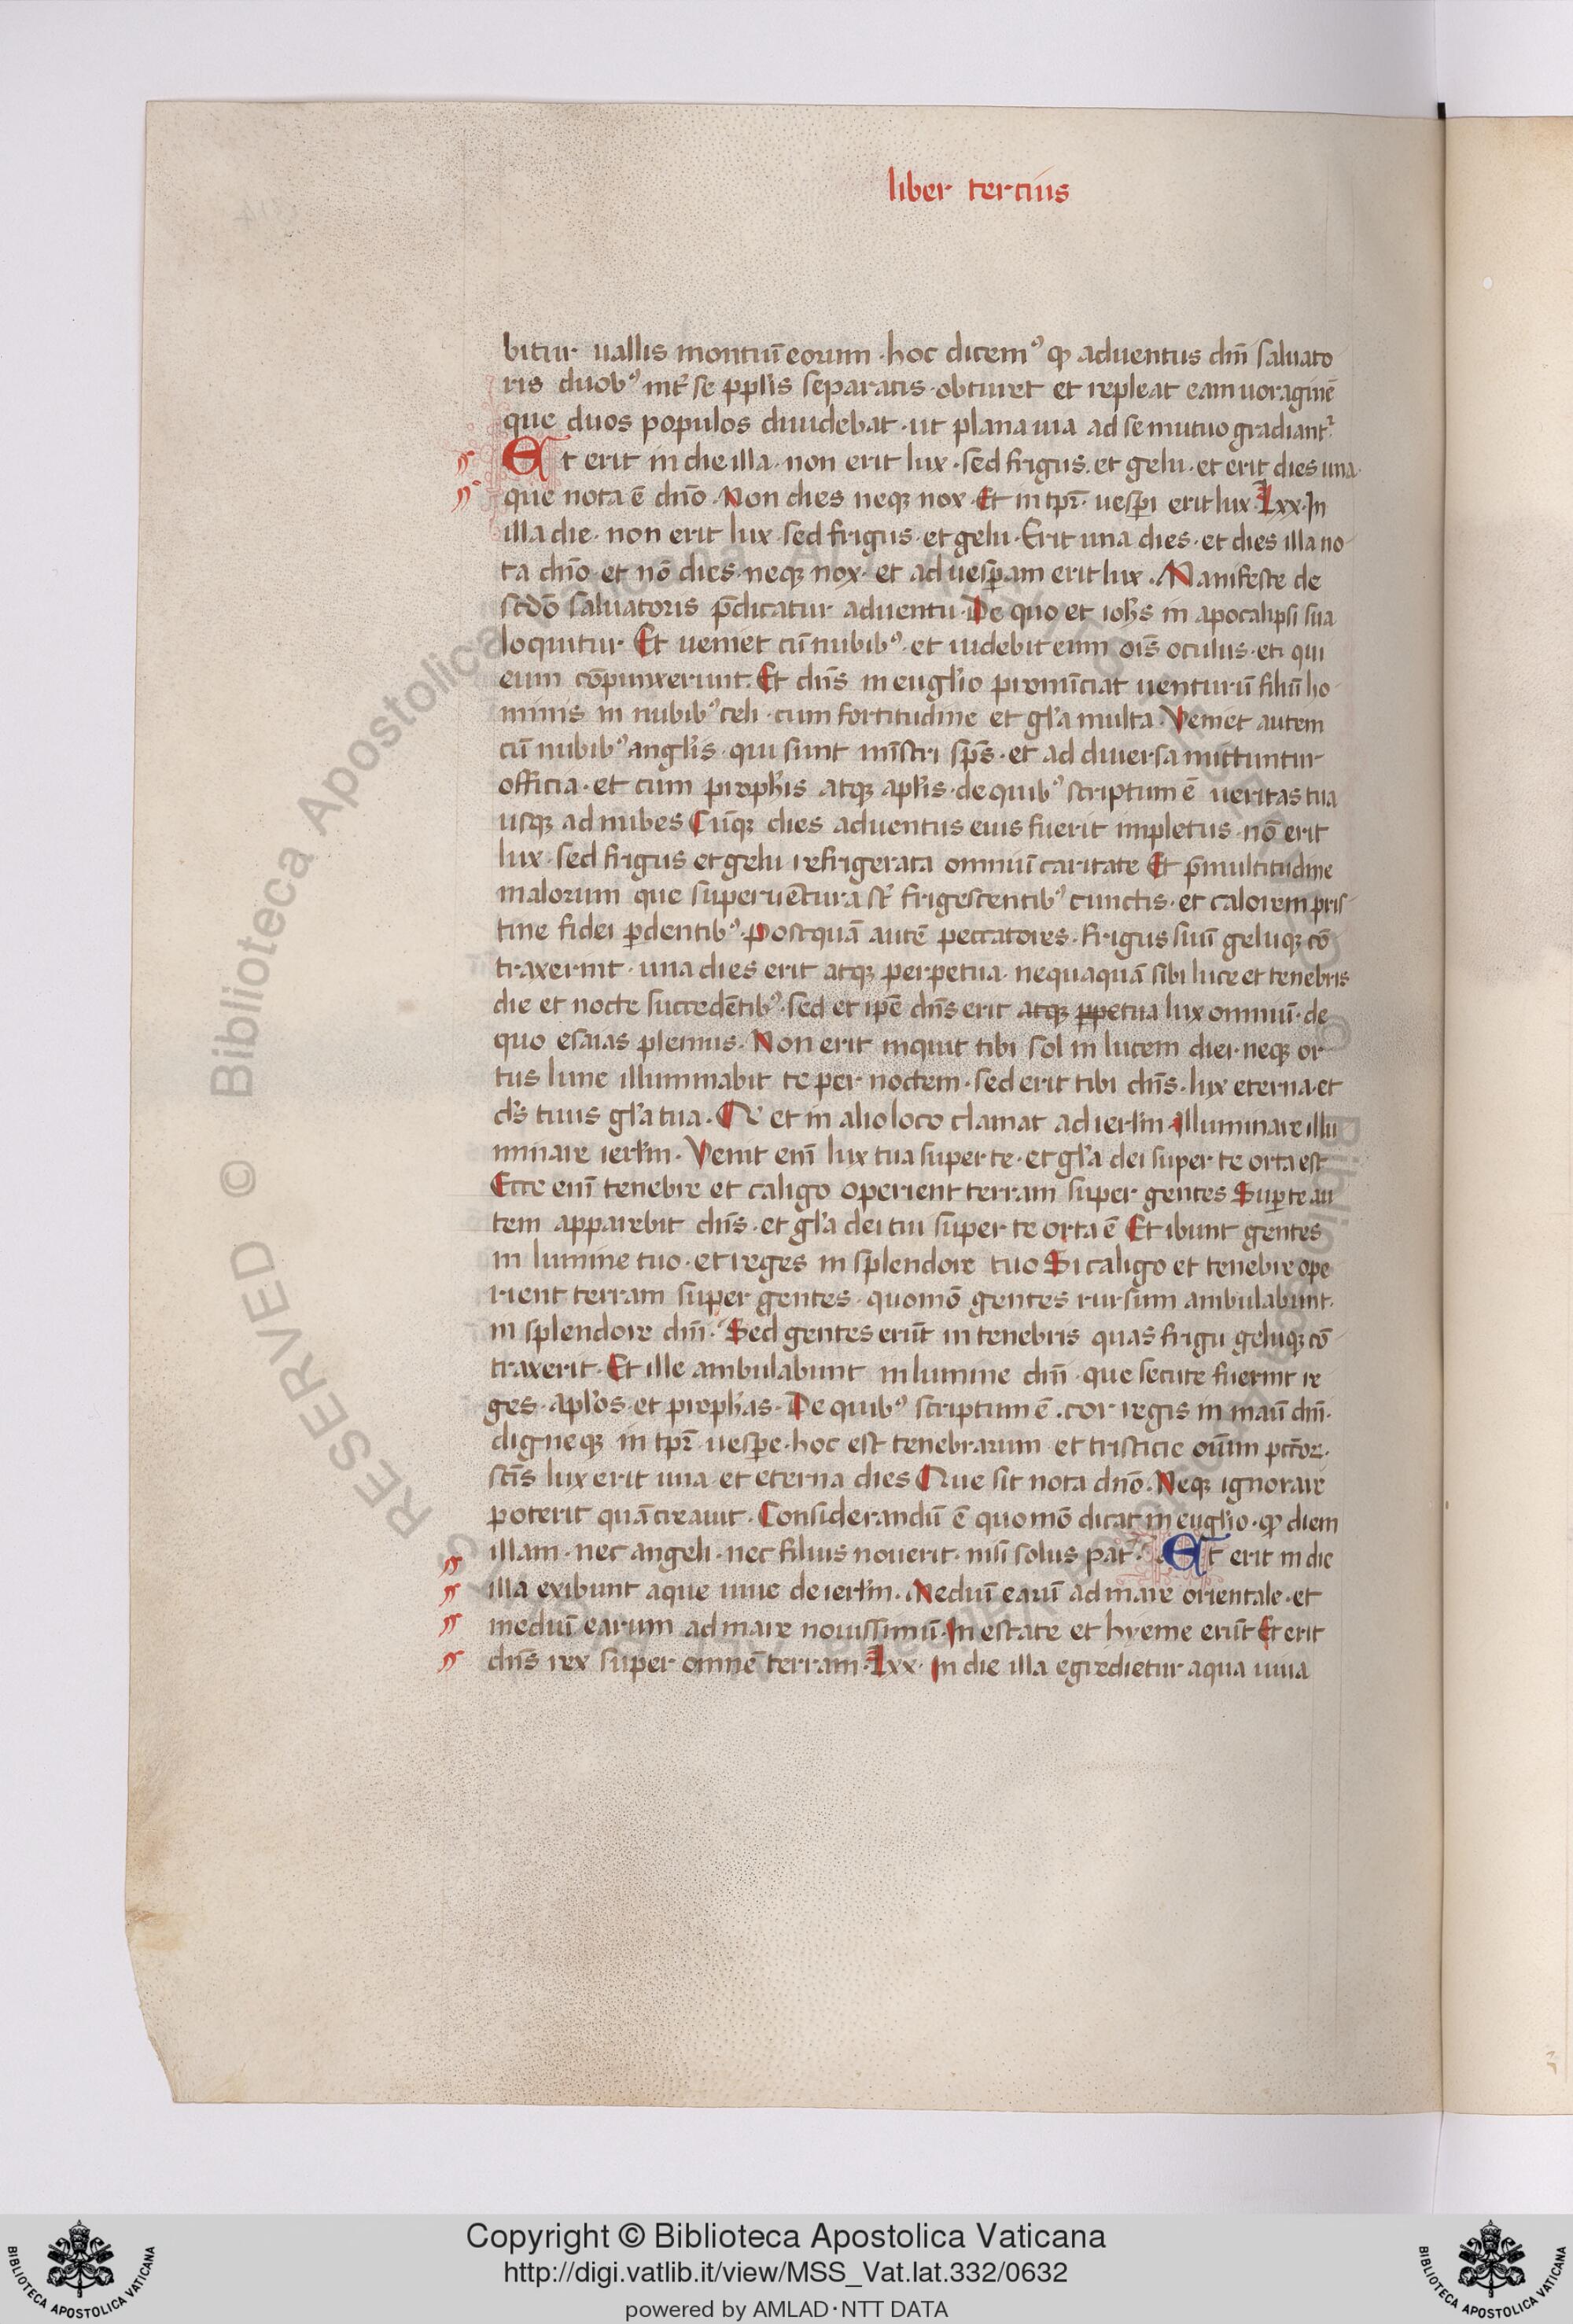 liber tercius
bitur uallis montiū eorum · hoc dicemꝰ ꝙ aduentus dn̄i saluato
ris duobꝰ int͛ se ppl̓is separatis · obturet et repleat eam uoraginē
que duos populos diuidebat · ut plana uia ad se mutuo gradiant᷑
Et erit in die illa · non erit lux · sed frigus · et gelu · et erit dies una ·
que nota ē dn̄o · Non dies neqꝫ nox · Et in tp̄r · uesp̄i erit lux · Lxx · In
illa die · non erit lux · sed frigus · et gelu · Erit una dies · et dies illa no
ta dn̄o · et nō dies · neqꝫ nox · et ad uesꝑam erit lux · Manifeste de
sc̄do saluatoris p̄dicatur aduentu · De quo et ioh̄s in apocalipsi sua
loquitur · Et ueniet cū nubibꝰ · et uidebit eum oīs oculus · et qui
eum cōpunxerunt · Et dn̄s in eugl̓io pronūciat uenturū filiū ho
minis in nubibꝰ celi · cum fortitudine et gl̓a multa · Veniet autem
cū nubibꝰ angl̓is · qui sunt mīstri sp̄s · et ad diuersa mittuntur
officia · et cum proph̓is atqꝫ apl̓is · de quibꝰ scriptum ē ueritas tua
usqꝫ ad nubes Cūqꝫ dies aduentus eius fuerit impletus · nō erit
lux · sed frigus et gelu refrigerata omniū caritate Et p̄ multitudine
malorum que superuētura st̄ frigescentibꝰ cunctis · et calorem pris
tine fidei ꝑdentibꝰ · Postquā autē peccatores · frigus suū geluqꝫ cō
traxerint · una dies erit atqꝫ perpetua · nequaquā sibi luce et tenebris
die et nocte succedētibꝰ · sed et ip̄e dn̄s erit atqꝫ ꝑpetua lux omniū · de
quo esaias plenius · Non erit inquit tibi sol in lucem diei · neqꝫ or
tus lune illuminabit te per noctem · sed erit tibi dn̄s · lux eterna · et
d̓s tuus gl̓a tua · Un̄ et in alio loco clamat ad ierl̓m · Illuminare illu
minare ierl̓m · Venit enī lux tua super te · et gl̓a dei super te orta est
Ecce enī tenebre et caligo operient terram super gentes Suꝑ te au
tem apparebit dn̄s · et gl̓a dei tui super te orta ē Et ibunt gentes
in lumine tuo · et reges in splendore tuo Si caligo et tenebre ope
rient terram super gentes · quomō gentes rursum ambulabunt ·
in splendore dn̄i · Sed gentes erūt in tenebris quas frigu geluqꝫ cō
traxerit · Et ille ambulabunt in lumine dn̄i · que secute fuerint re
ges · apl̓os · et proph̓as · De quibꝰ scriptum ē · cor regis in manū dn̄i ·
digneqꝫ in tp̄r · uesꝑe · hoc est tenebrarum et tristicie oūm pct̄oꝝ ·
sc̄is lux erit una · et eterna dies Que sit nota dn̄o · Neqꝫ ignorare
poterit quā creauit · Considerandū ē quomō dicat in eugl̓io · ꝙ diem
illam · nec angeli · nec filius nouerit · nisi solus pat͛ · Et erit in die
illa exibunt aque uiue de ierl̓m · Mediū earū ad mare orientale · et
mediū earum ad mare nouissimū · In estate et hyeme erūt Et erit
dn̄s rex super omnē terram · Lxx · In die illa egredietur aqua uiua
RESERVED © Biblioteca Apostolica Vaticana
Copyright © Biblioteca Apostolica Vaticana
http://digi.vatlib.it/view/MSS_Vat.lat.332/0632
powered by AMLAD·NTT DATA
BIBLIOTECA APOSTOLICA VATICANA
BIBLIOTECA APOSTOLICA VATICANA